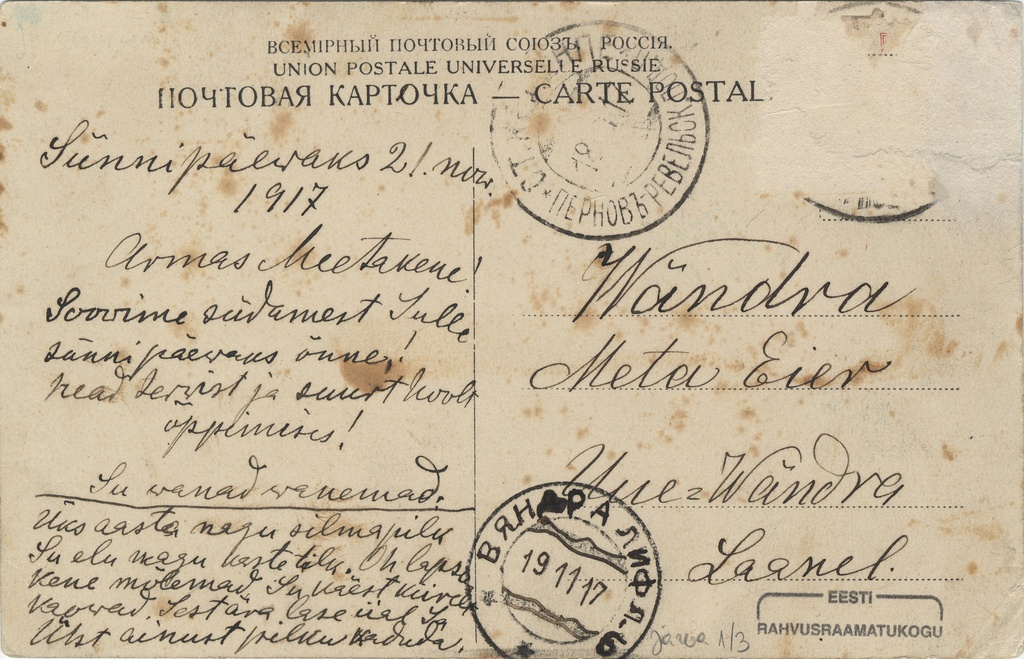 ВСЕМІРНЫЙ ПОЧТОВЫЙ СОЮЗЪ РОССІЯ.
UNION POSTALE UNIVERSELLE RUSSIE
ПОЧТОВАЯ КАРТОЧКА — CARTE POSTALE
ПЕРНОВЪ РЕВЕЛЬСК
18
Sünnipäewaks 21. now.
1917
Armas Meetakene!
Soovime südamest Sulle
sünnipäewaks õnne!
head terwist ja suurt hoolt
õppimises!
Su wanad wanemad.
Üks aasta nagu silmapilk
Su elu nagu kastetilk. Oh lapse
kene mõlemad Su käest kiirelt
kaowad. Sest ära lase iial
Üht ainust pilku kaduda.
Wändra
Meta Eier
Uue=Wändra
Laanel.
ВЯНДРА ЛИФЛ. б
19 11 17
EESTI
RAHVUSRAAMATUKOGU
1/3